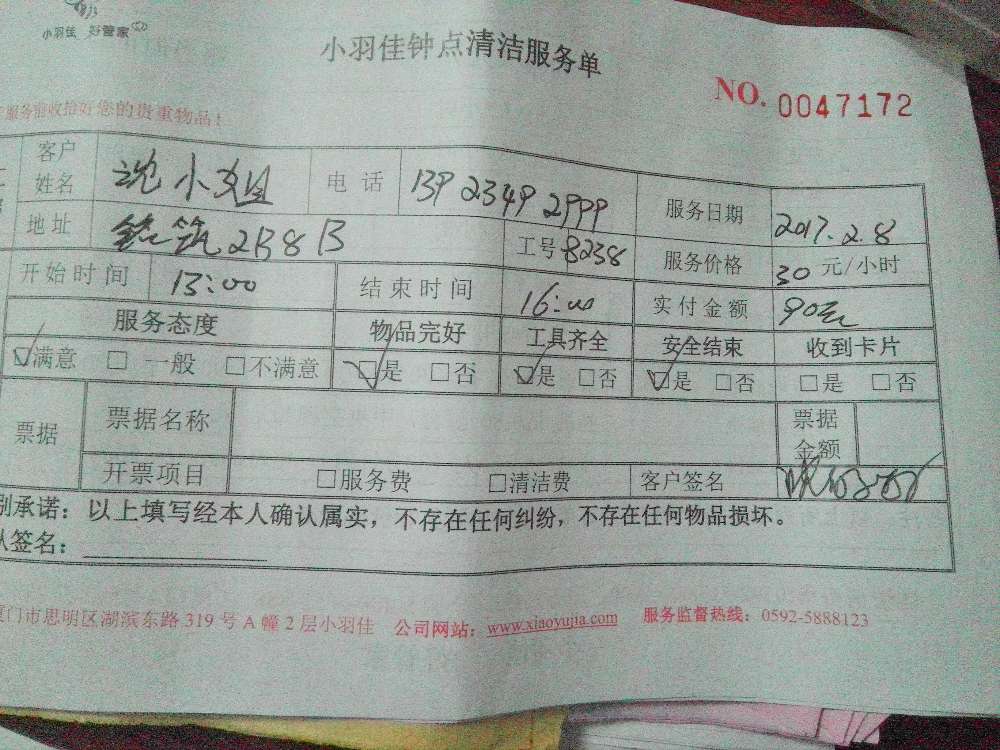 小羽佳 好管家
小羽佳钟点清洁服务单
NO. 0047172
服务前收拾好您的贵重物品！
客户姓名 沈小姐 电话 13923492999 服务日期 2017.2.8
地址 2B8B 工号 8238 服务价格 30 元/小时
开始时间 13:00 结束时间 16:00 实付金额 90元
服务态度 物品完好 工具齐全 安全结束 收到卡片
☑满意 □一般 □不满意 ☑是 □否 ☑是 □否 ☑是 □否 □是 □否
票据 票据名称 票据金额
开票项目 □服务费 □清洁费 客户签名
别承诺：以上填写经本人确认属实，不存在任何纠纷，不存在任何物品损坏。
签名：
厦门市思明区湖滨东路 319 号 A 幢 2 层小羽佳 公司网站：www.xiaoyujia.com 服务监督热线：0592-5888123